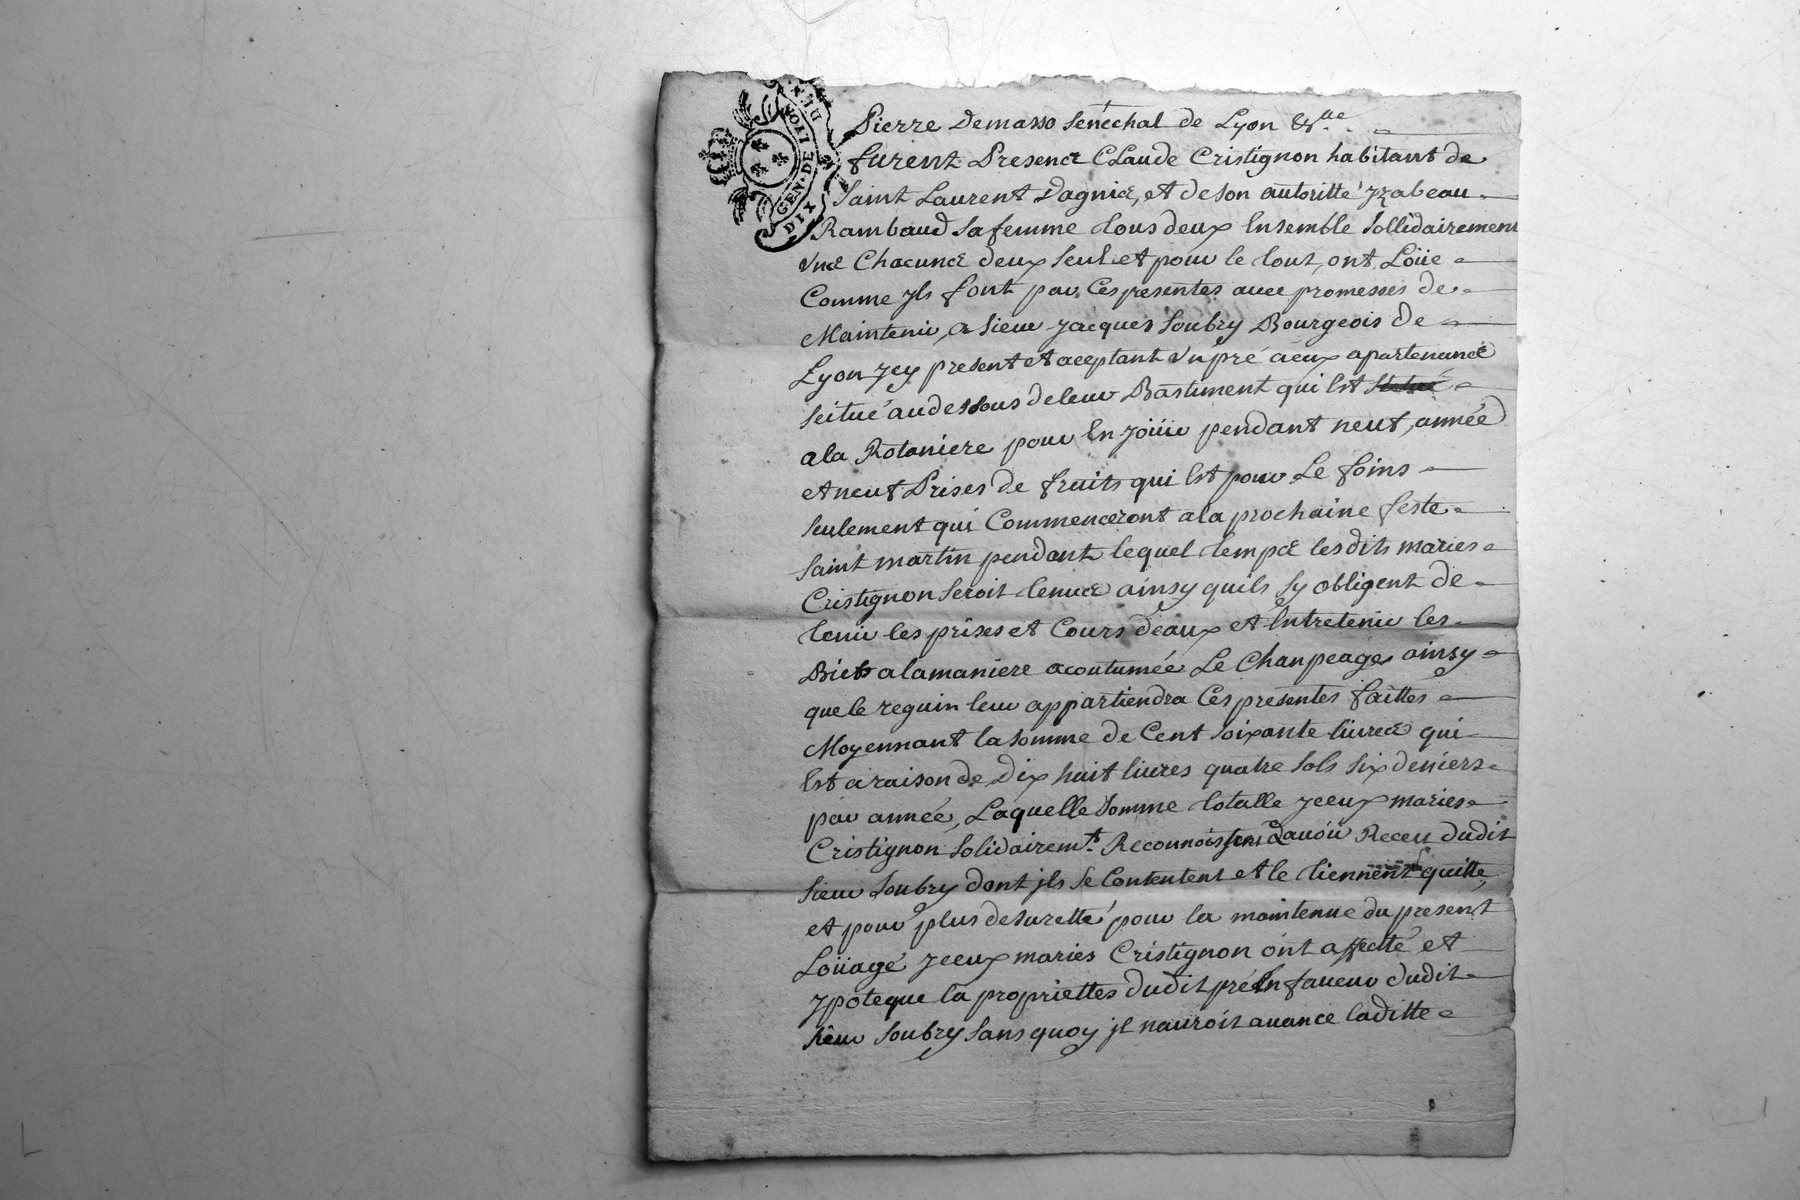 GEN. DE LYON
DIX DEN.
Pierre Demasso Senechal de Lyon &c.
furent Presence Claude Cristignon habitant de
Saint Laurent Dagnie, et de son autoritté yzabeau
Rambaud sa femme tous deux Ensemble sollidairement
Vne Chacune deux seul et pour le tout, ont Loüe
Comme jls font par Ces presentes avec promesses de
Maintenir, a Sieur Jacques Soubry Bourgeois de
Lyon jcy present et aceptant vn pré a eux apartenance
seitué au dessous de leur Bastiment qui Est
a la Rotoniere pour En joüir pendant neuf, année
et neuf Prises de fruits qui Est pour Le foins
seulement qui Commenceront a la prochaine feste
saint martin pendant lequel tempce les dits maries
Cristignon seroit tenuce ainsy quils sy obligent de
tenir les prises et Cours d'eaux et Entretenir les
Biets a la maniere acoutumée Le Chanpeage ainsy
que le reguin leur appartiendra Ces presentes faittes
Moyennant la somme de Cent soixante livrece qui
Est a raison de Dix huit livres quatre sols six deniers
par année, Laquelle Somme totalle jceux maries
Cristignon solidairemt. Reconnoissent avoir Receu dudit
sieur Soubry dont jls se Contentent et le tiennent quitte,
et pour plus de suretté pour la maintenue du present
Loüage jceux maries Cristignon ont affecté et
ypoteque la propriettes dudit pré En faueur dudit
sieur Soubry sans quoy jl nauroit auance laditte